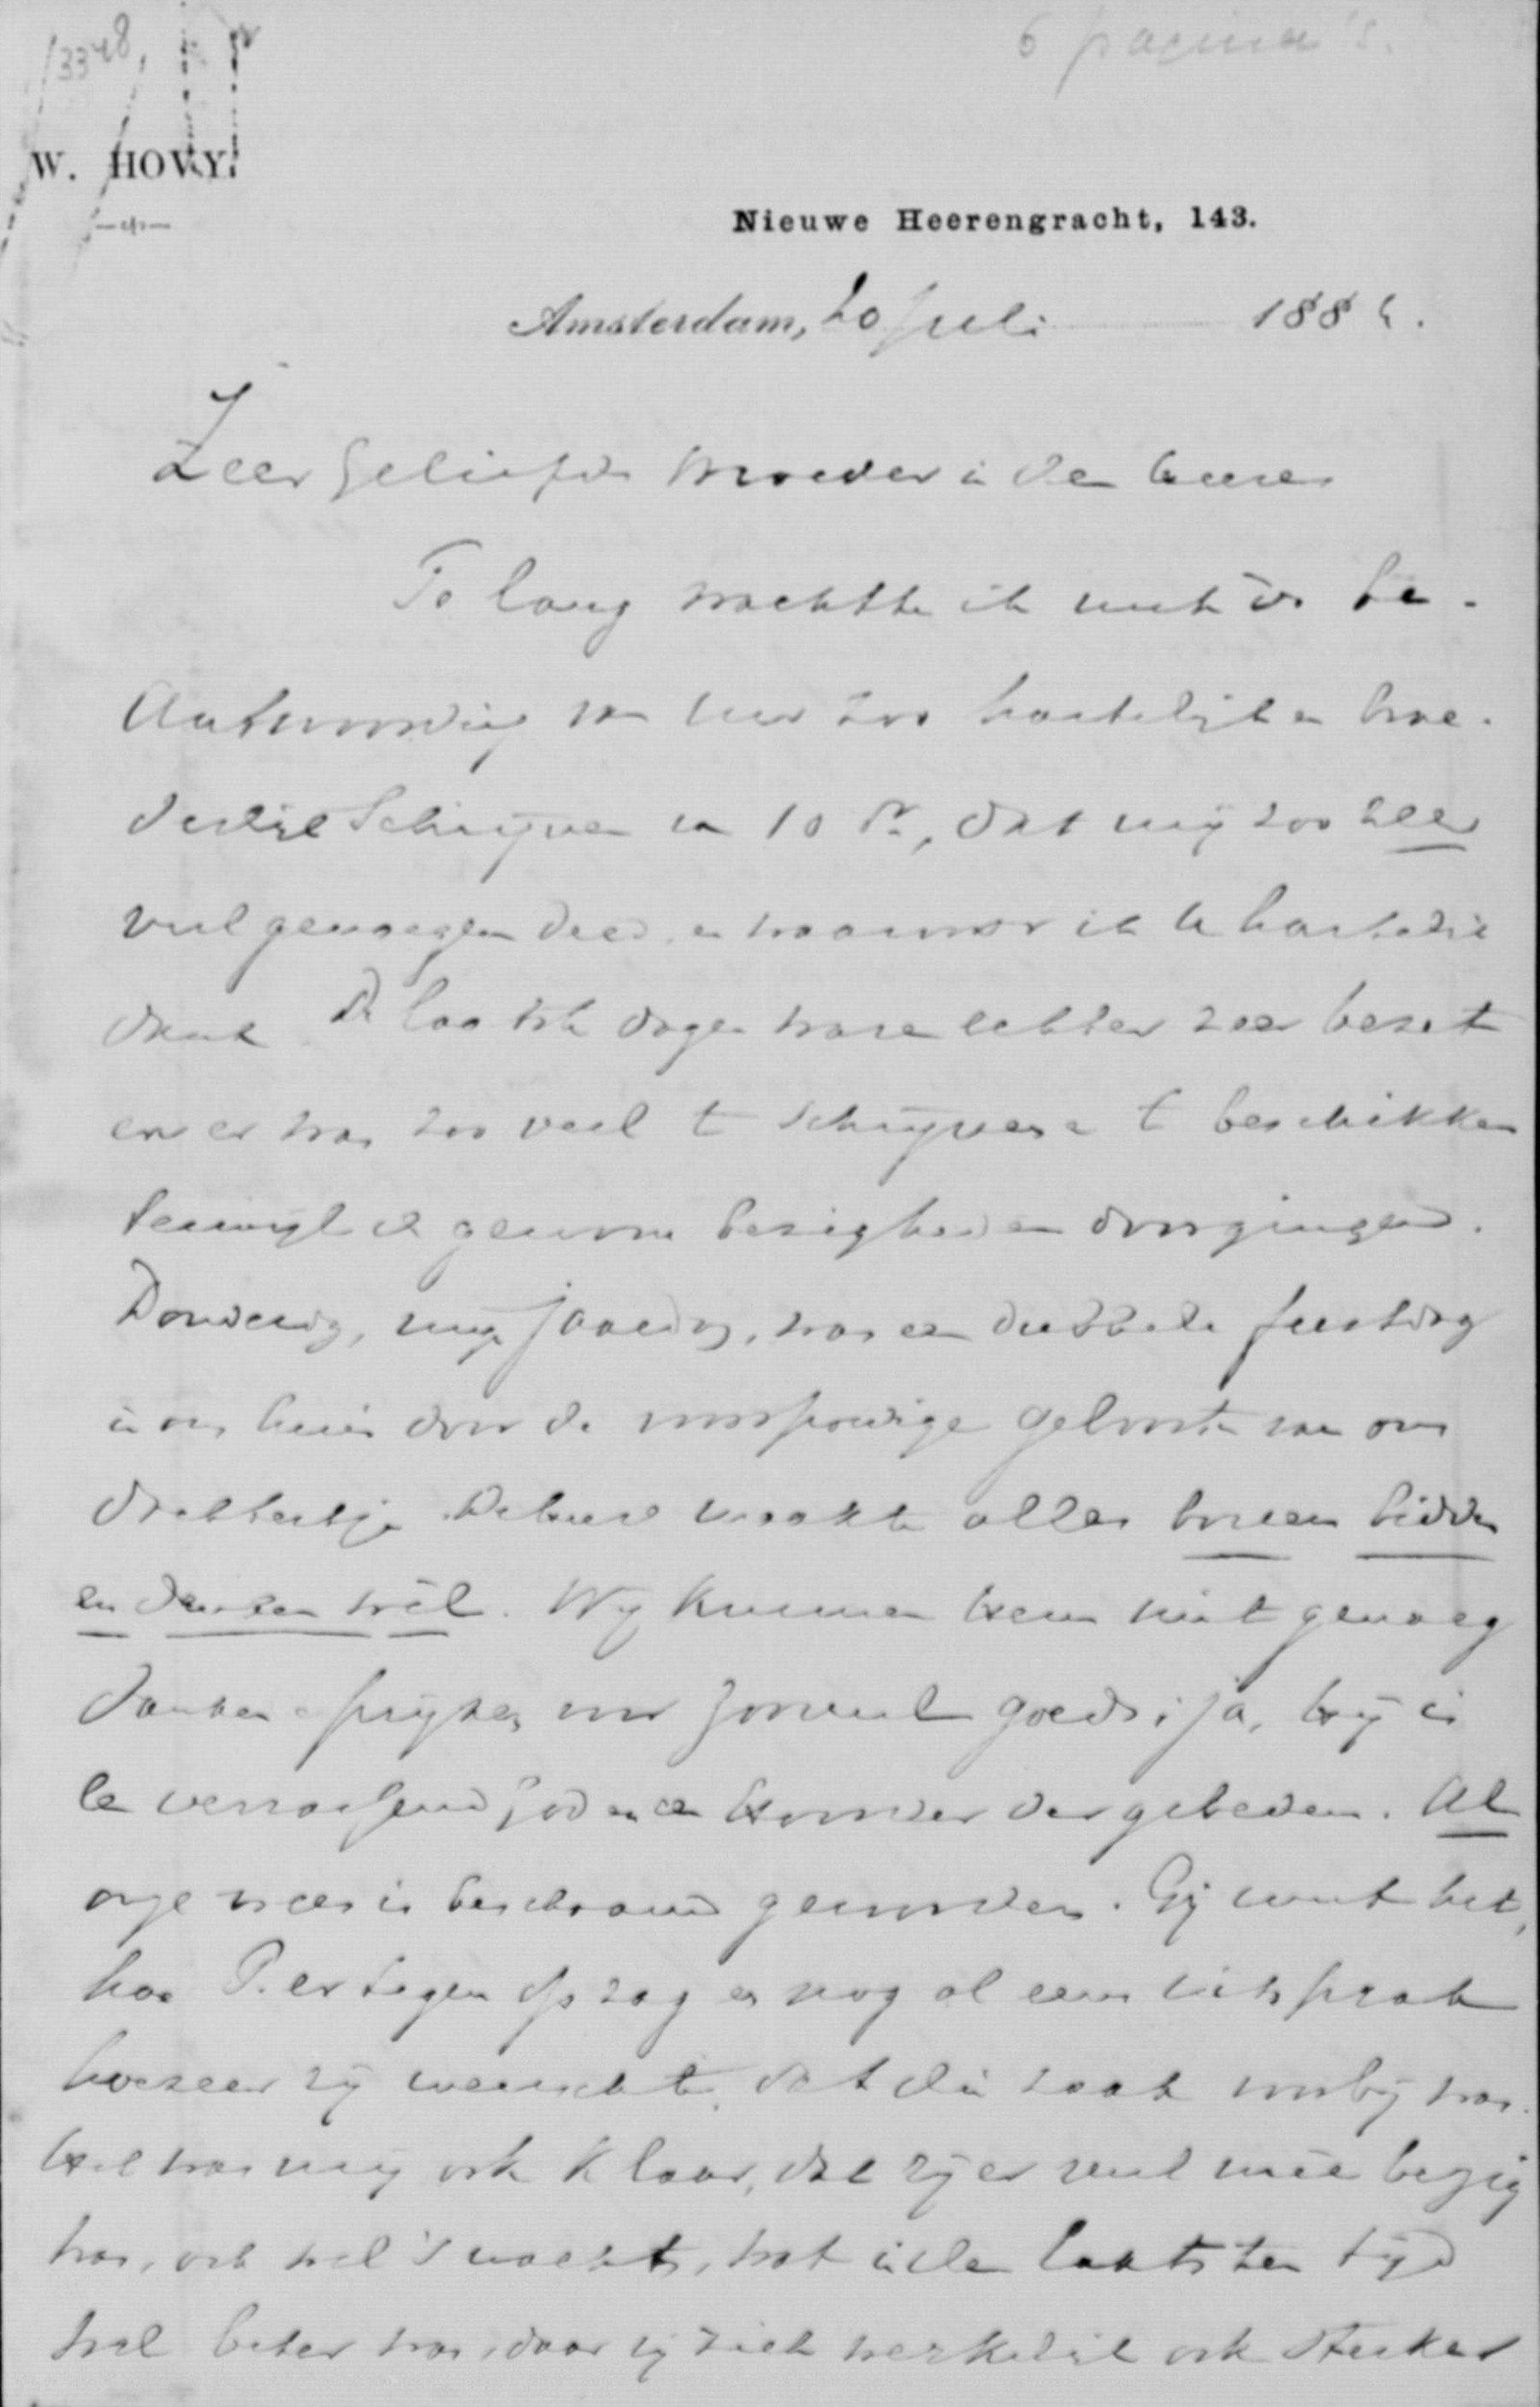 3348
6 pagina's.
W. HOVY.
Nieuwe Heerengracht, 143.
Amsterdam, 20 Juli 188
Zeer geliefde Broeder in den Heere
Te lang wachtte ik met de be-
antwoording van uw zoo hartelijk en broe-
derlijk schrijven van 10 dr, dat mij zoo zeer
veel genoegen deed en waarvoor ik U hartelijk
dank. De laatste dagen waren echter zeer bezet
en er was zoo veel te schrijven en te beschikken
terwijl de gewone bezigheden doorgingen.
Donderdag, mijn jaardag, was een dubbele feestdag
in ons huis door de voorspoedige geboorte van ons
dochtertje. De Heere maakte alles boven bidden
en denken wèl. Wij kunnen Hem niet genoeg
danken en prijzen voor zooveel goeds; ja, Hij is
een verrassend God en een Hoorder der gebeden. Al
onze vrees is beschaamd geworden. Gij weet het,
hoe P. er tegen op zag en nog al eens uitsprak
hoezeer zij wenschte, dat die zaak voorbij was.
Het was mij ook klaar, dat zij er veel mêe bezig
was, ook wel 's nachts, wat in den laatsten tijd
wel beter was, daar zij zich werkelijk ook sterker